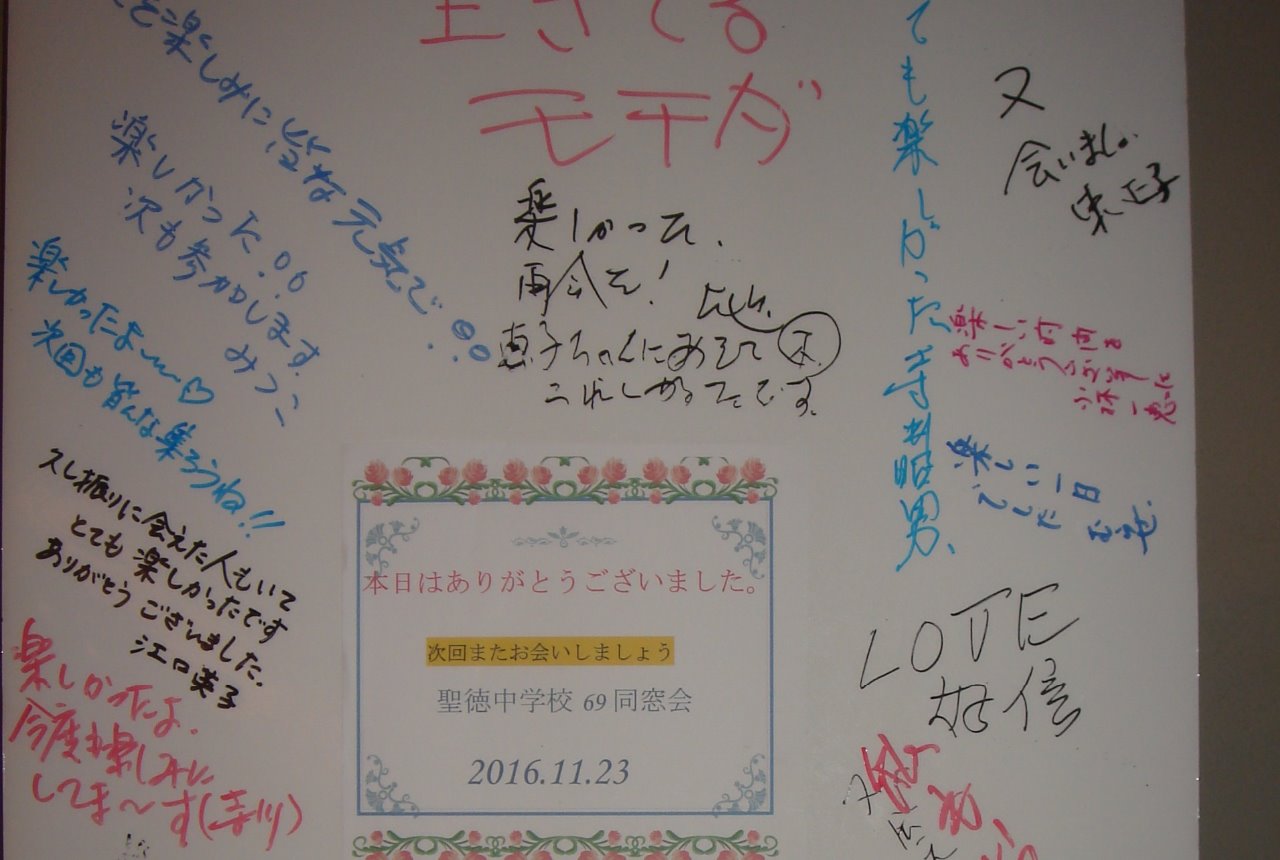 生きてる
モテガ
を楽しみに皆な元気で
楽しかった
次も参加します。
みつこ
楽しかったよ〜〜♡
次回も皆んな集ろうね!!
久し振りに会えた人もいて
とても楽しかったです
ありがとうございました。
江口英子
楽しかったよ.
今度も楽しみに
してま〜す(寺川)
楽しかった.
再会を!
恵子ちゃんにあえて
うれしかったです.
本日はありがとうございました。
次回またお会いしましょう
聖徳中学校 69 同窓会
2016.11.23
ても楽しかった
昭男
又
会いましょ
楽しい時間を
ありがとう
小林
楽しい一日
でした
LOVE